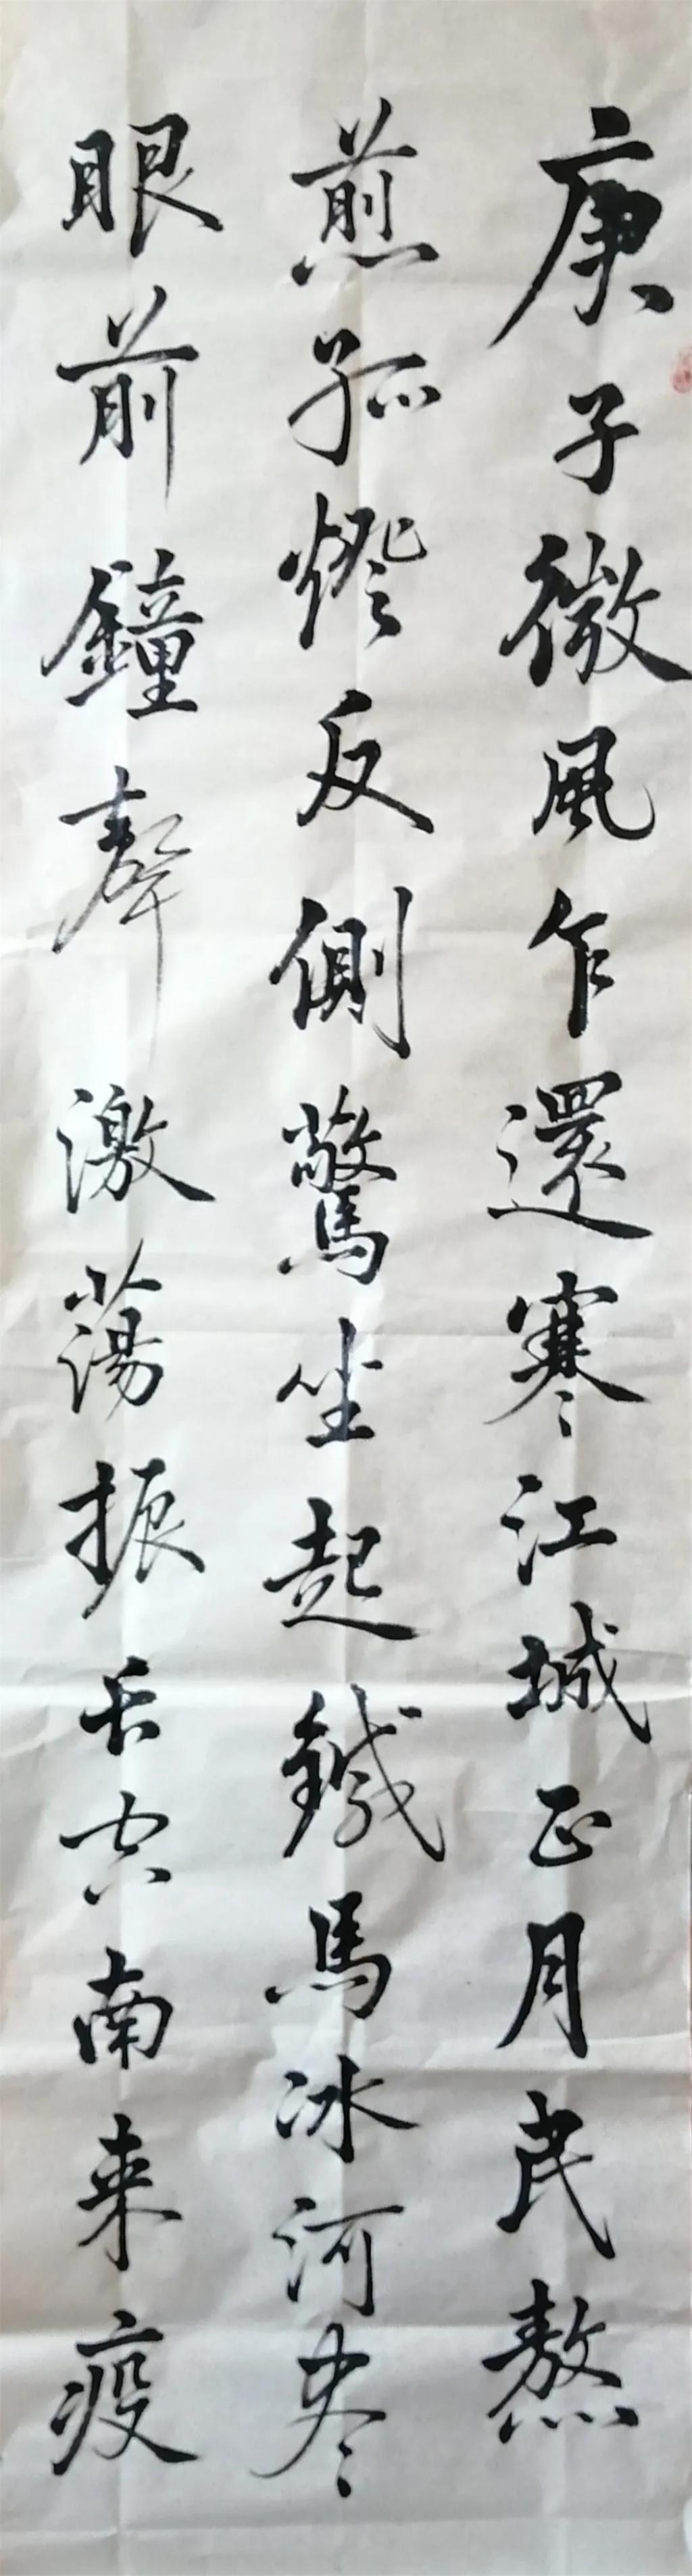 庚子微風乍還寒江城正月民熬
煎孤燈反側驚坐起鐵馬冰河尽
眼前鐘聲激蕩振长空南来疫